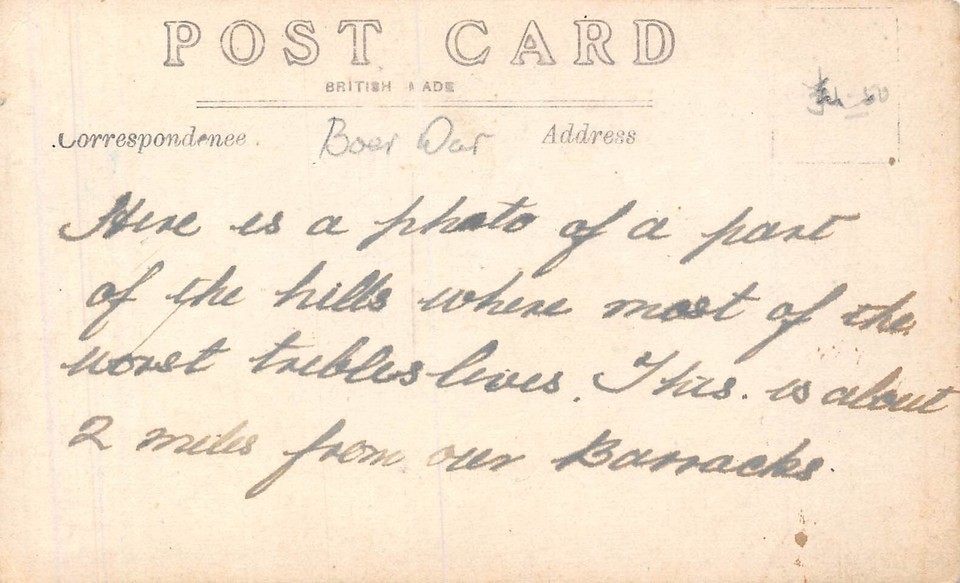 POST CARD
BRITISH MADE
Correspondence. Boer War Address
Here is a photo of a part
of the hills where most of the
worst trebles lives. This. is about
2 miles from our Barracks.